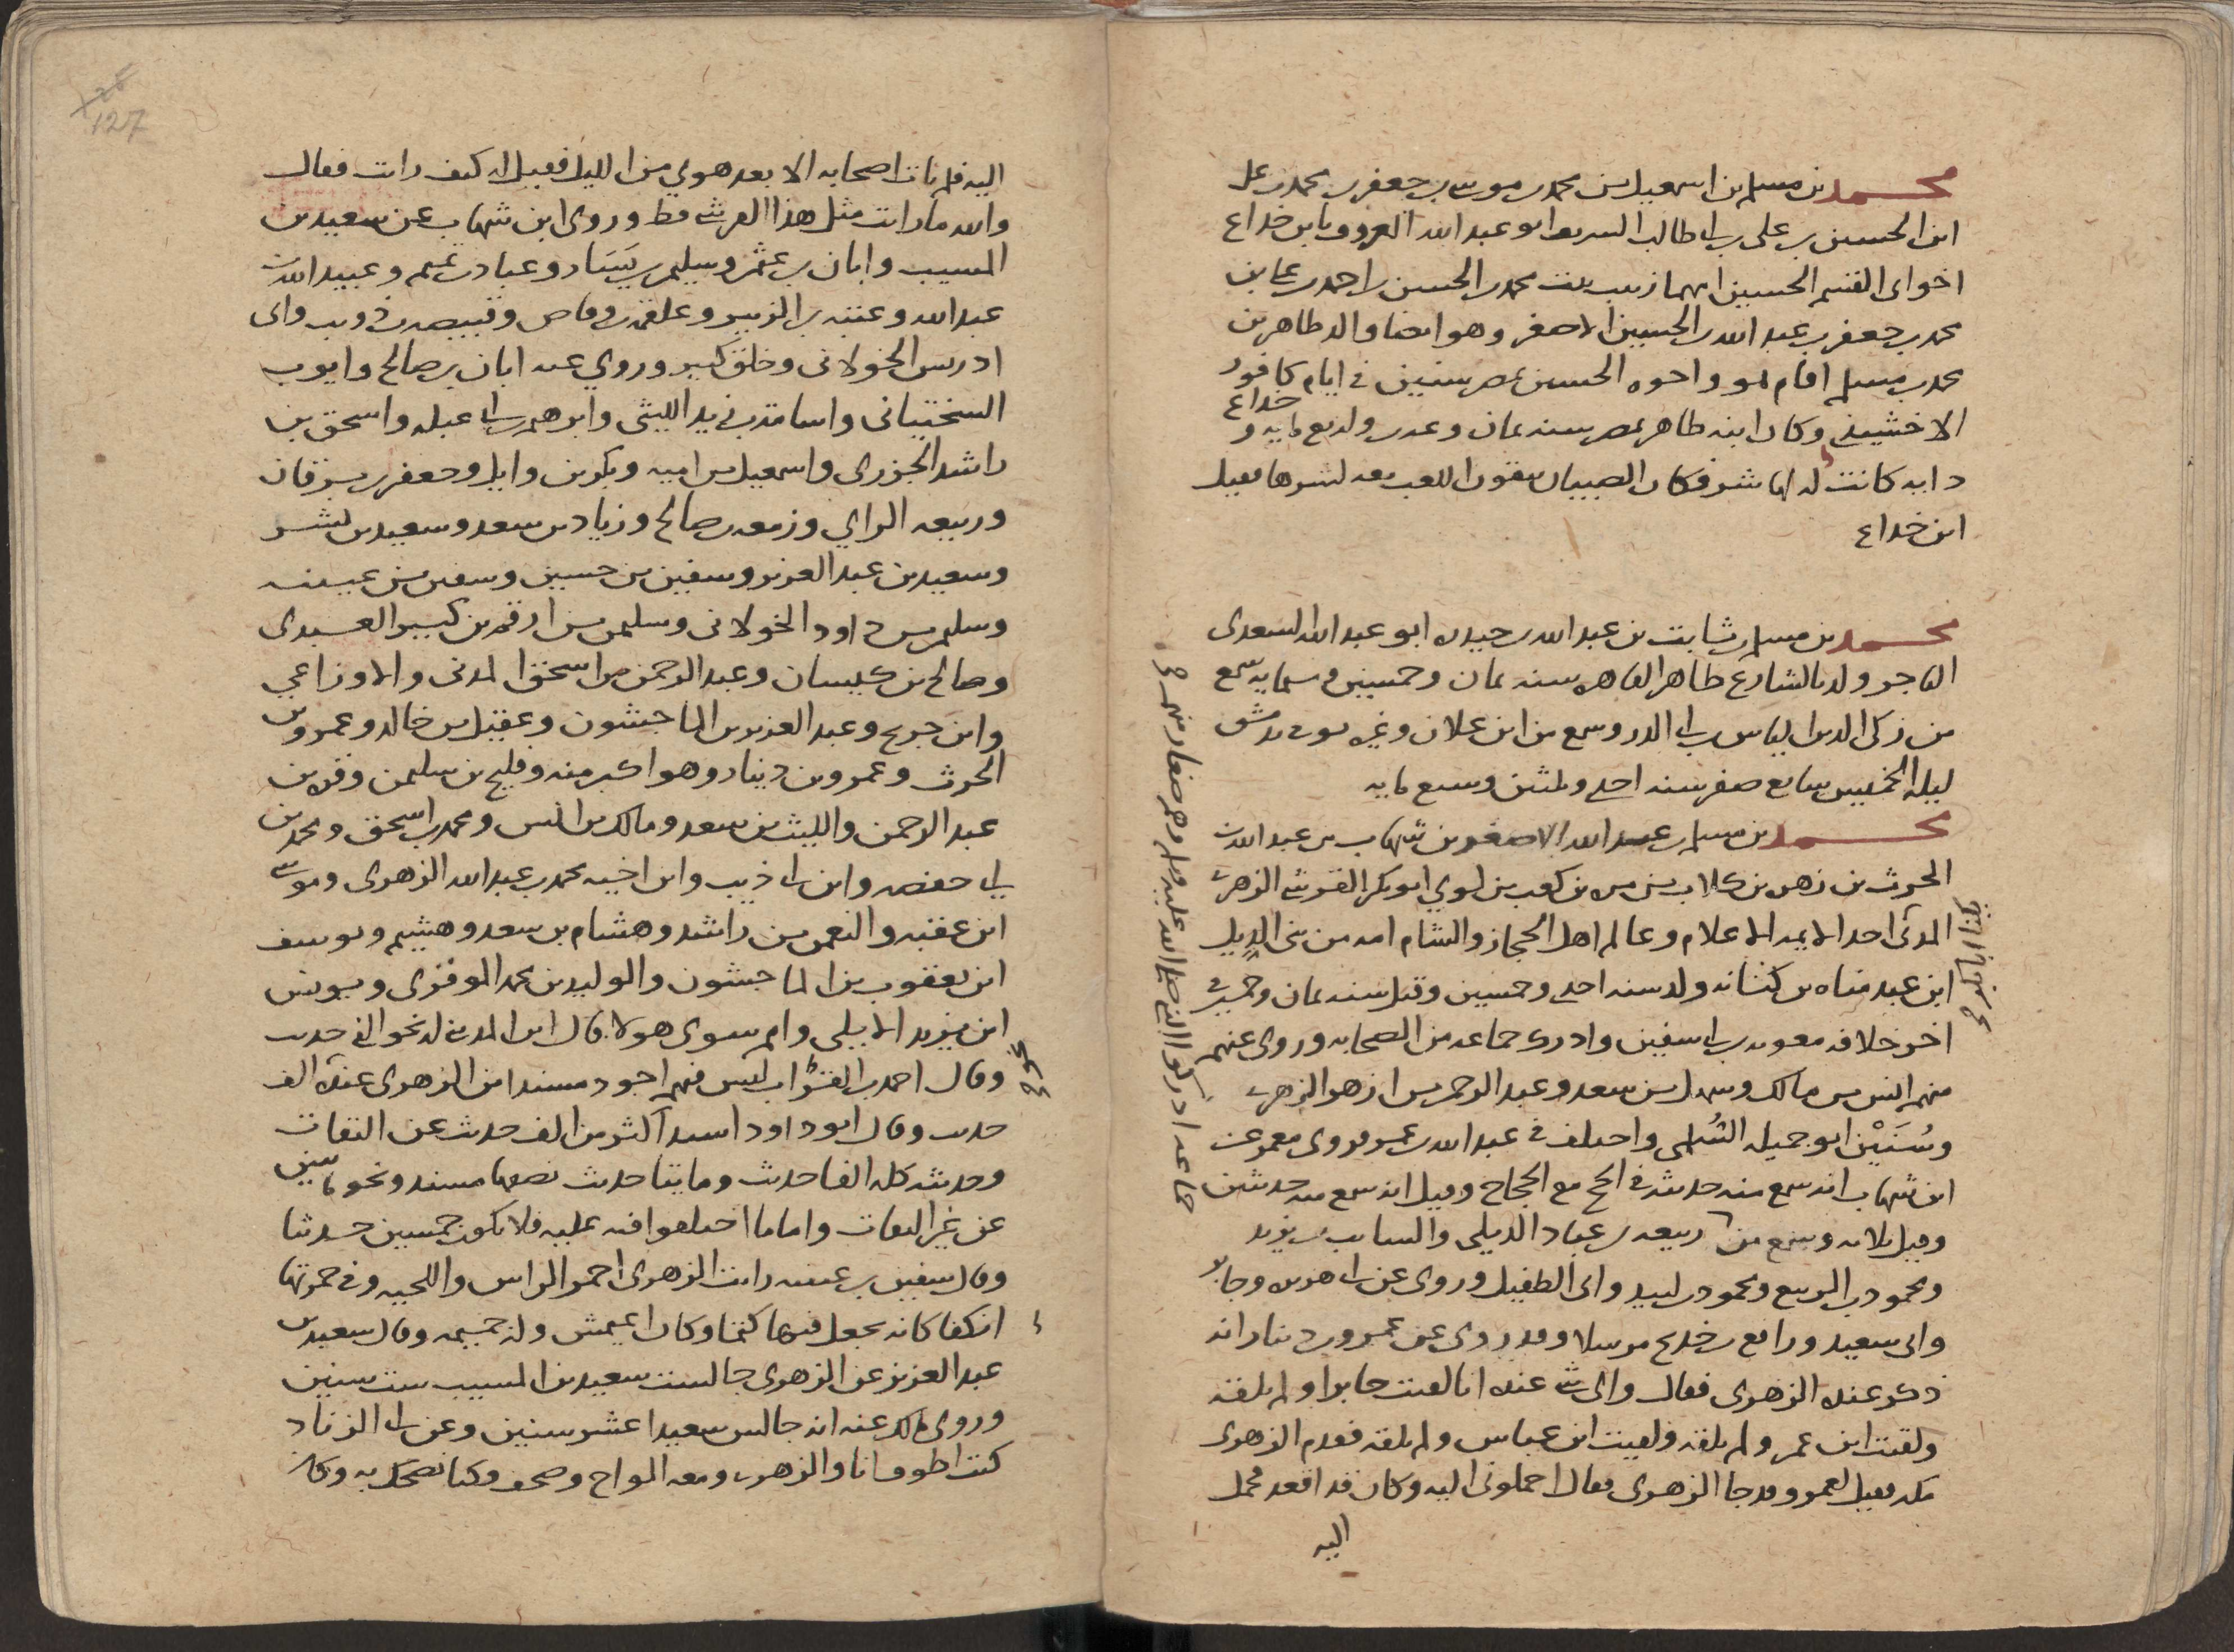 محمد بن مسلم بن اسمعيل بن محمد بن موسى بن جعفر بن محمد بن على
ابن الحسين بن على بن ابى طالب الشريف ابو عبد الله المعروف بابن خداع
اخو ابى القسم الحسين امهما زينب بنت محمد بن الحسن بن احمد بن على بن
محمد بن جعفر بن عبد الله بن الحسين الاصغر وهو ايضا والد طاهر بن
محمد بن مسلم اقام هو واخوه الحسين بمصر سنين فى ايام كافور
الاخشيدى وكان ابنه طاهر بمصر سنه ثمان وعشرين واربع مايه و خداع
دايه كانت له بها شرف فكان الصبيان يبتغون اللعب معه لشرها فقيل
ابن خداع
محمد بن مسلم بن ثابت بن عبد الله بن حميده ابو عبد الله السعدى
التاجر ولد بالشارع ظاهر القاهره سنه ثمان وخمسين وستمايه سمع
من زكى الدين الياس بن ابى الدر وسمع من ابن علان وغيره توفى بدمشق
ليلة الخميس سابع صفر سنه احدى وثلثين وسبع مايه
محمد بن مسلم بن عبيد الله الاصغر بن شهاب بن عبد الله بن
الحرث بن زهره بن كلاب بن مره بن كعب بن لوي ابو بكر القرشى الزهرى
المدنى احد الايمه الاعلام وعالم اهل الحجاز والشام امه من بنى الديل
ابن عبد مناه بن كنانه ولد سنه احدى وخمسين وقيل سنه ثمان وخمسين فى
اخر خلافه معويه بن ابى سفين وادرك جماعه من الصحابه وروى عنهم
منهم انس بن مالك وسهل بن سعد وعبد الرحمن بن ازهر الزهرى
وسُنَيْن ابو جميله السُلمى واختلف فى عبد الله بن عمر فروى معمر عن
ابن شهاب انه سمع منه حديثه فى الحج مع الحجاج وقيل انه سمع منه حديثين
وقيل ثلاثه وسمع من ربيعه بن عباد الديلى والسايب بن يزيد
ومحمود بن الربيع ومحمود بن لبيد وابى الطفيل وروى عن ابى هريره وجابر
وابى سعيد ورافع بن خديج مرسلا وقد روى عن عمرو بن دينار انه
ذكر عنده الزهرى فقال واى شى عنده انا لقيت جابرا ولم يلقه
ولقيت ابن عمر ولم يلقه ولقيت ابن عباس ولم يلقه فقدم الزهرى
مكه فقيل لعمرو قد جا الزهرى فقال احملونى اليه وكان قد اقعد فحمل
اليه
جماعه ادركوا النبى صلى الله عليه وسلم وهم صغار منهم
اليه فلم يات اصحابه الا بعد هوي من الليل فقيل له كيف رايت فقال
والله ما رايت مثل هذا القرشى قط وروى ابن شهاب عن سعيد بن
المسيب وابان بن عثمن وسليمن بن يَسَار وعباد بن تميم وعبيد الله بن
عبد الله وعروه بن الزبير وعلقمه بن وقاص وقبيصه بن ذويب وابى
ادريس الخولانى وخلق كثير وروي عنه ابان بن صالح وايوب
السختيانى واسامه بن زيد الليثى وابرهيم بن ابى عبله واسحق بن
راشد الجزرى واسمعيل بن اميه وبكر بن وايل وجعفر بن برقان
وربيعه الراي وزمعه بن صالح وزياد بن سعد وسعيد بن بشير
وسعيد بن عبد العزيز وسفين بن حسين وسفين بن عيينه
وسليمن بن داود الخولانى وسليمن بن ارقم بن كثير العبدى
وصالح بن كيسان وعبد الرحمن بن اسحق المدنى والاوزاعي
وابن جريج وعبد العزيز بن الماجشون وعقيل بن خالد وعمرو بن
الحرث وعمرو بن دينار وهو اكبر منه وفليح بن سليمن وقره بن
عبد الرحمن والليث بن سعد ومالك بن انس ومحمد بن اسحق ومحمد بن
ابى حفصه وابن ابى ذيب وابن اخيه محمد بن عبد الله الزهرى وموسى
ابن عقبه والنعمن بن راشد وهشام بن سعد وهشيم ويوسف
ابن يعقوب بن الماجشون والوليد بن محمد الموقرى ويونس
ابن يزيد الايلى وامم سوى هولا قال ابن المدينى له نحو الفى حديث
وقال احمد بن الفرات ليس فيهم اجود مسندا من الزهرى عنده الف
حديث وقال ابو داود اسند اكثر من الف حديث عن الثقات
وحديثه كله الفا حديث ومايتا حديث نصفها مسند ونحو مايتين
عن غير الثقات واما ما اختلفوا فيه عليه فلا يكون خمسين حديثا
وقال سفين بن عيينه رايت الزهرى احمر الراس واللحيه وفى حمرتها
انكفا كانه يجعل فيها كتما وكان اعيمش وله جميمه وقال سعيد بن
عبد العزيز عن الزهرى جالست سعيد بن المسيب ست سنين
وروى مالك عنه انه جالس سعيدا عشر سنين وعن ابى الزناد
كنت اطوف انا والزهرى ومعه الواح وصحف وكنا نضحك به وكان
127